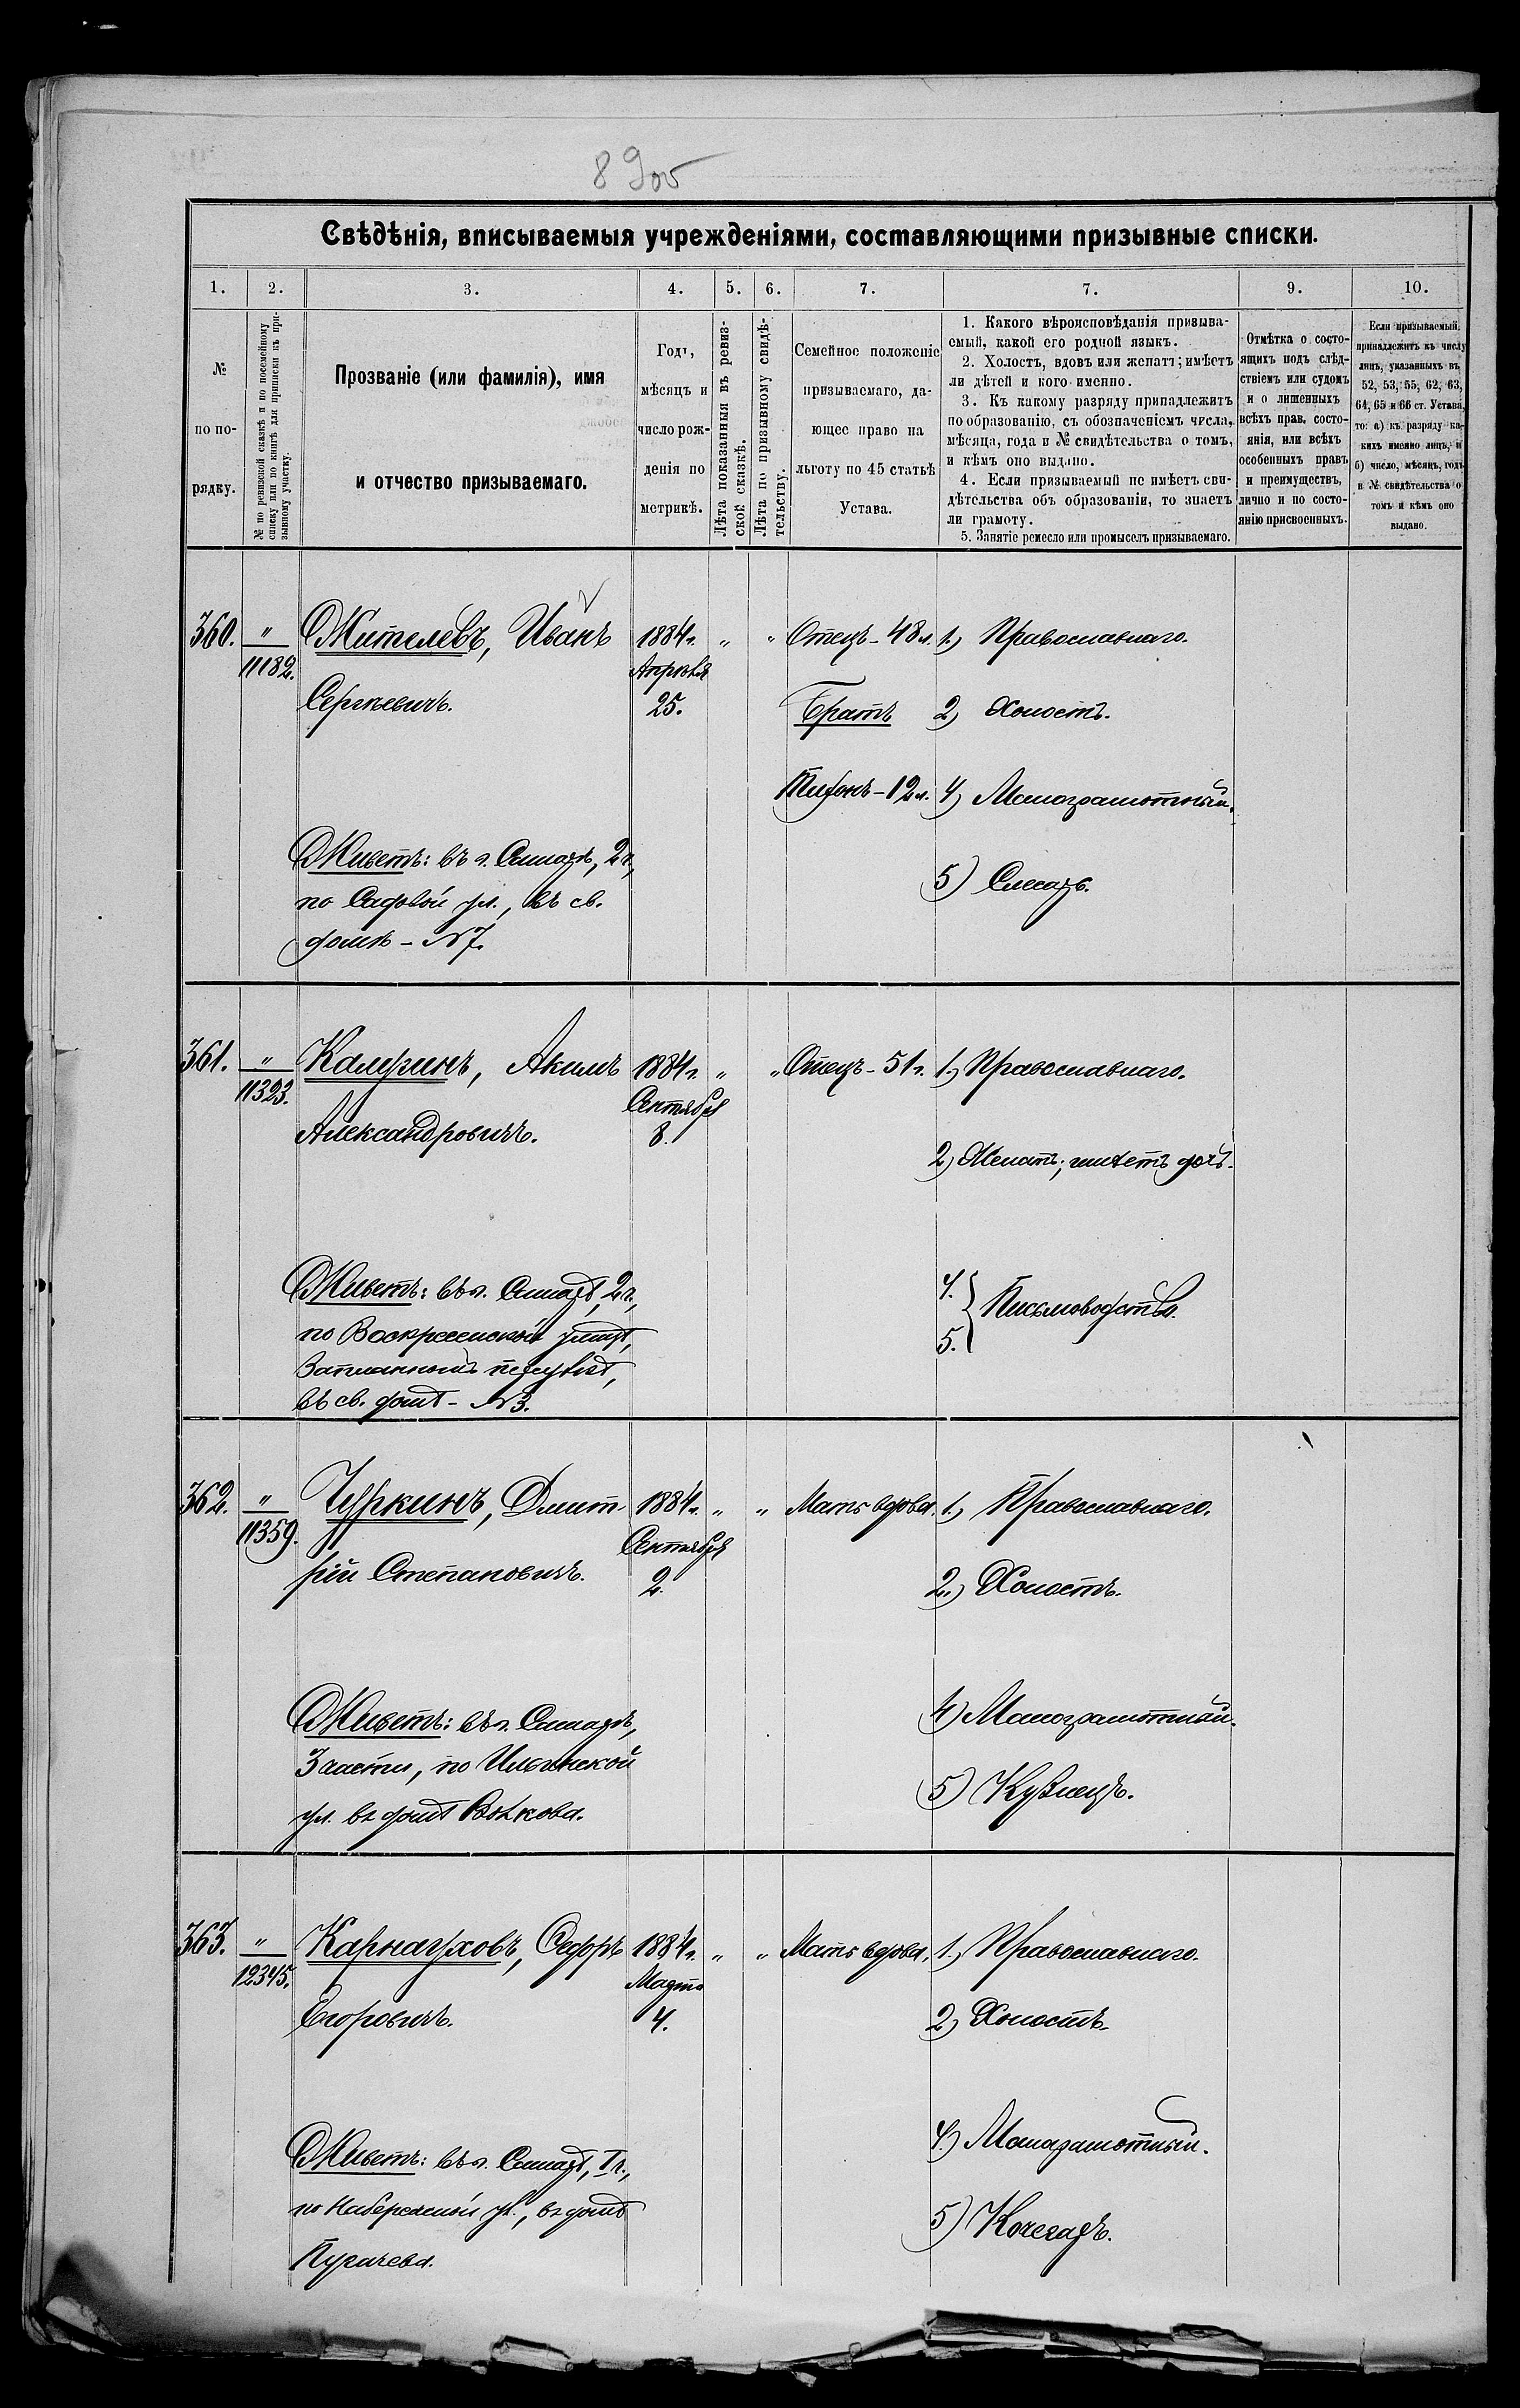 89об
Свѣдѣнія, вписываемыя учрежденіями, составляющими призывные списки.
1. 2. 3. 4. 5. 6. 7. 7. 9. 10.
№
по по-
рядку.
№ по ревизской сказкѣ и по посемейному
списку или по книгѣ для приписки къ при-
зывному участку.
Прозваніе (или фамилія), имя
и отчество призываемаго.
Годъ,
мѣсяцъ и
число рож-
денія по
метрикѣ.
Лѣта показанныя въ ревиз-
ской сказкѣ.
Лѣта по призывному свидѣ-
тельству.
Семейное положеніе
призываемаго, да-
ющее право на
льготу по 45 статьѣ
Устава.
1. Какого вѣроисповѣданія призыва-
емый, какой его родной языкъ.
2. Холостъ, вдовъ или женатъ; имѣетъ
ли дѣтей и кого именно.
3. Къ какому разряду принадлежитъ
по образованію, съ обозначеніемъ числа,
мѣсяца, года и № свидѣтельства о томъ,
и кѣмъ оно выдано.
4. Если призываемый не имѣетъ сви-
дѣтельства объ образованіи, то знаетъ
ли грамоту.
5. Занятіе ремесло или промыселъ призываемаго.
Отмѣтка о состо-
ящихъ подъ слѣд-
ствіемъ или судомъ
и о лишенныхъ
всѣхъ прав. состо-
янія, или всѣхъ
особенныхъ правъ
и преимуществъ,
лично и по состо-
янію присвоенныхъ.
Если призываемый
принадлежитъ къ числу
лицъ, указанныхъ въ
52, 53, 55, 62, 63,
64, 65 и 66 ст. Устава,
то: а) къ разряду ка-
кихъ именно лицъ, и
б) число, мѣсяцъ, годъ
и № свидѣтельства о
томъ и кѣмъ оно
выдано.
360. " Жителевъ, Иванъ 1884г. " " Отецъ - 48л. 1.) Православнаго.
11182. Апрѣля
Сергѣевичъ. 25. Братъ 2) Холостъ.
Тихонъ - 12л. 4) Малограмотный.
Живетъ: въ г. Самарѣ, 2ч., 5) Слесарь.
по Садовой ул., въ св.
домѣ - №7.
361. " Калеринъ, Акимъ 1884г. " " Отецъ - 51г. 1.) Православнаго.
11323. Сентября
Александровичъ. 8. 2) Женатъ; имѣетъ дочь.
Живетъ: въ г. Самарѣ, 2ч., 4.
по Воскресенской улицѣ, 5. Письмоводство.
переулкѣ,
въ св. домѣ - №3.
362. " Чуркинъ, Дмит- 1884г. " " Мать вдова. 1.) Православнаго.
11359. Сентября
рій Степановичъ. 2. 2.) Холостъ.
Живетъ: въ г. Самарѣ, 4) Малограмотный.
3 части, по Ильинской 5) Кузнецъ.
ул. въ домѣ Волкова.
363. " Карнауховъ, Ѳедоръ 1884г. " " Мать вдова. 1.) Православнаго.
12345. Марта
Егоровичъ. 4. 2) Холостъ.
Живетъ: въ г. Самарѣ, I ч., 4.) Малограмотный.
по Набережной ул., въ домѣ 5) Кочегаръ.
Пугачева.